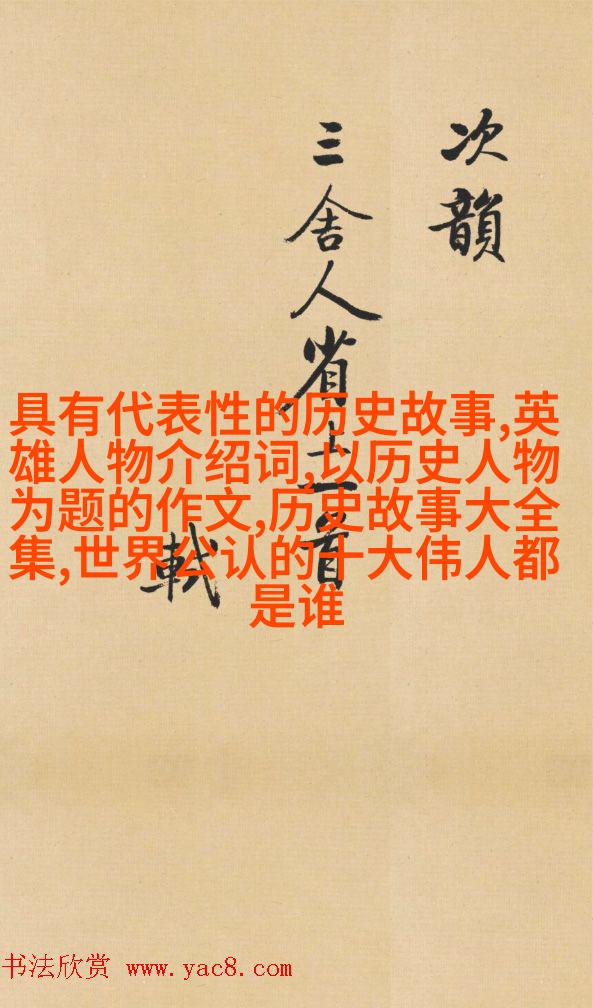 次韻
三舍人省上一首
軾
具有代表性的历史故事,英
雄人物介绍词,以历史人物
为题的作文,历史故事大全
集,世界公认的十大伟人都
是谁
书法欣赏 www.yac8.com